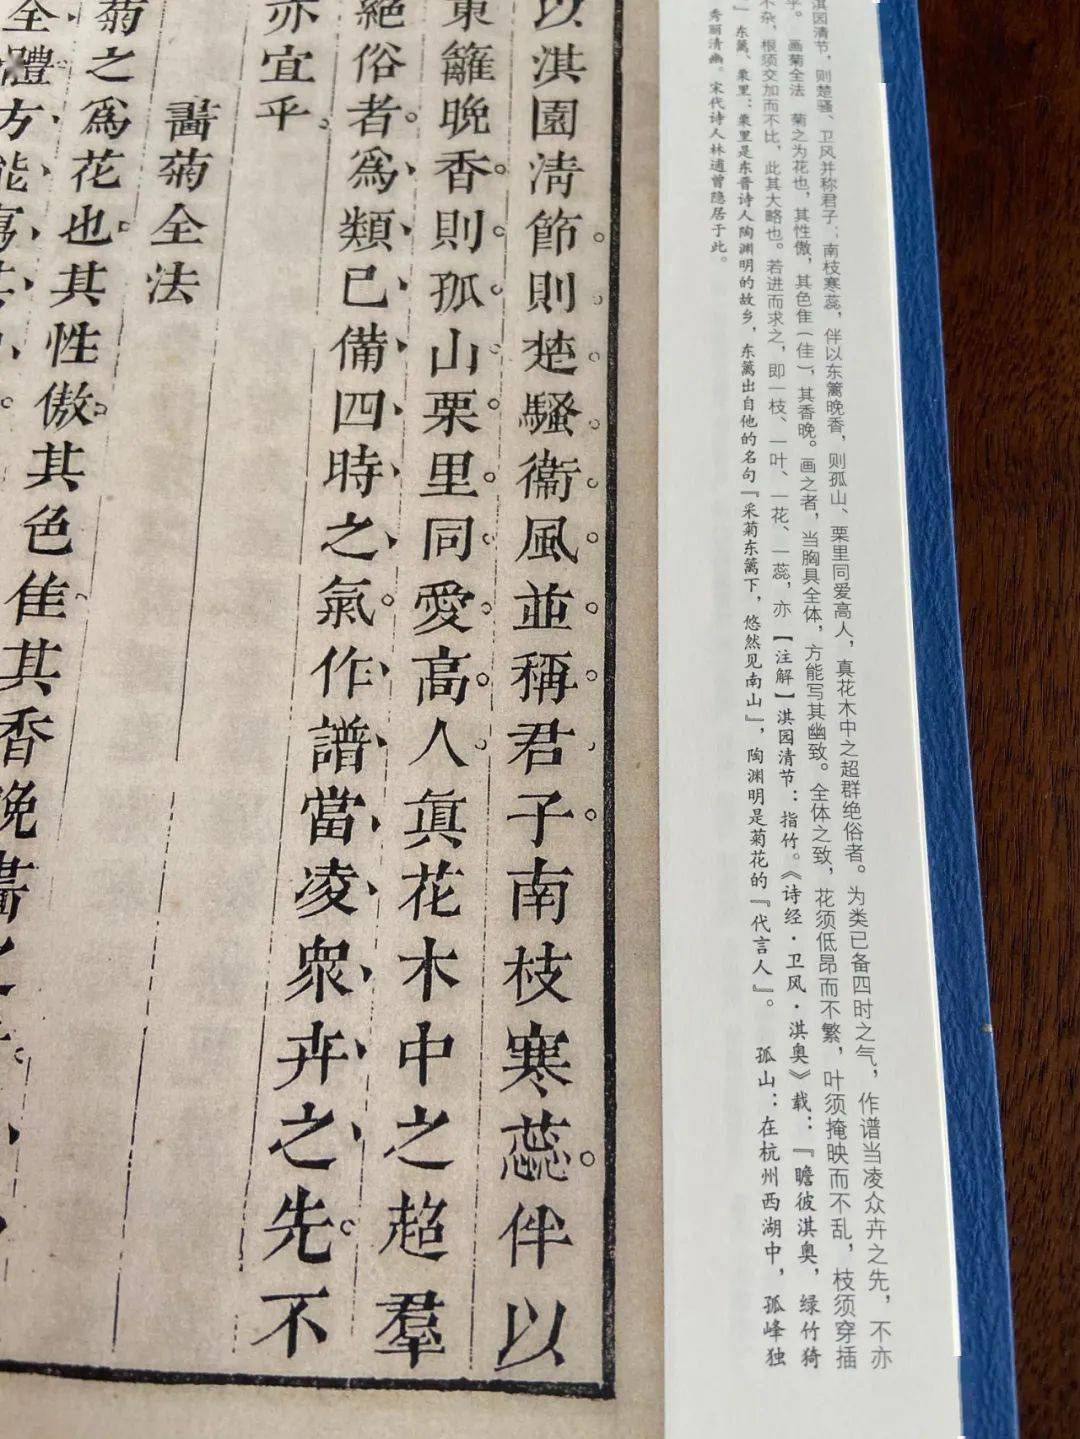 淇园清节，则楚骚、卫风并称君子；南枝寒蕊，伴以东篱晚香，则孤山、栗里同爱高人，真花木中之超群绝俗者。为类已备四时之气，作谱当凌众卉之先，不亦
乎。 画菊全法 菊之为花也，其性傲，其色隹（佳），其香晚。画之者，当胸具全体，方能写其幽致。全体之致，花须低昂而不繁，叶须掩映而不乱，枝须穿插
不杂，根须交加而不比，此其大略也。若进而求之，即一枝、一叶、一花、一蕊，亦 【注解】淇园清节：指竹。《诗经·卫风·淇奥》载：『瞻彼淇奥，绿竹猗
』东篱、栗里：栗里是东晋诗人陶渊明的故乡，东篱出自他的名句『采菊东篱下，悠然见南山』，陶渊明是菊花的『代言人』。 孤山：在杭州西湖中，孤峰独
秀丽清幽。宋代诗人林逋曾隐居于此。
以淇園淸節則楚騷衞風並稱君子南枝寒蕊伴以
東籬晚香則孤山栗里同愛高人眞花木中之超羣
絕俗者爲類已備四時之氣作譜當凌衆卉之先不
亦宜乎
畵菊全法
菊之爲花也其性傲其色隹其香晚畵之
全體方能寫其